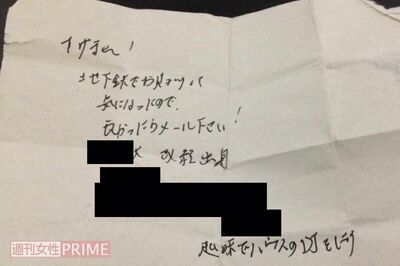 地下鉄でお見かけして
気になったので、
良かったらメール下さい!
大 政経出身
趣味でハウスのDJをしてる
週刊女性PRIME